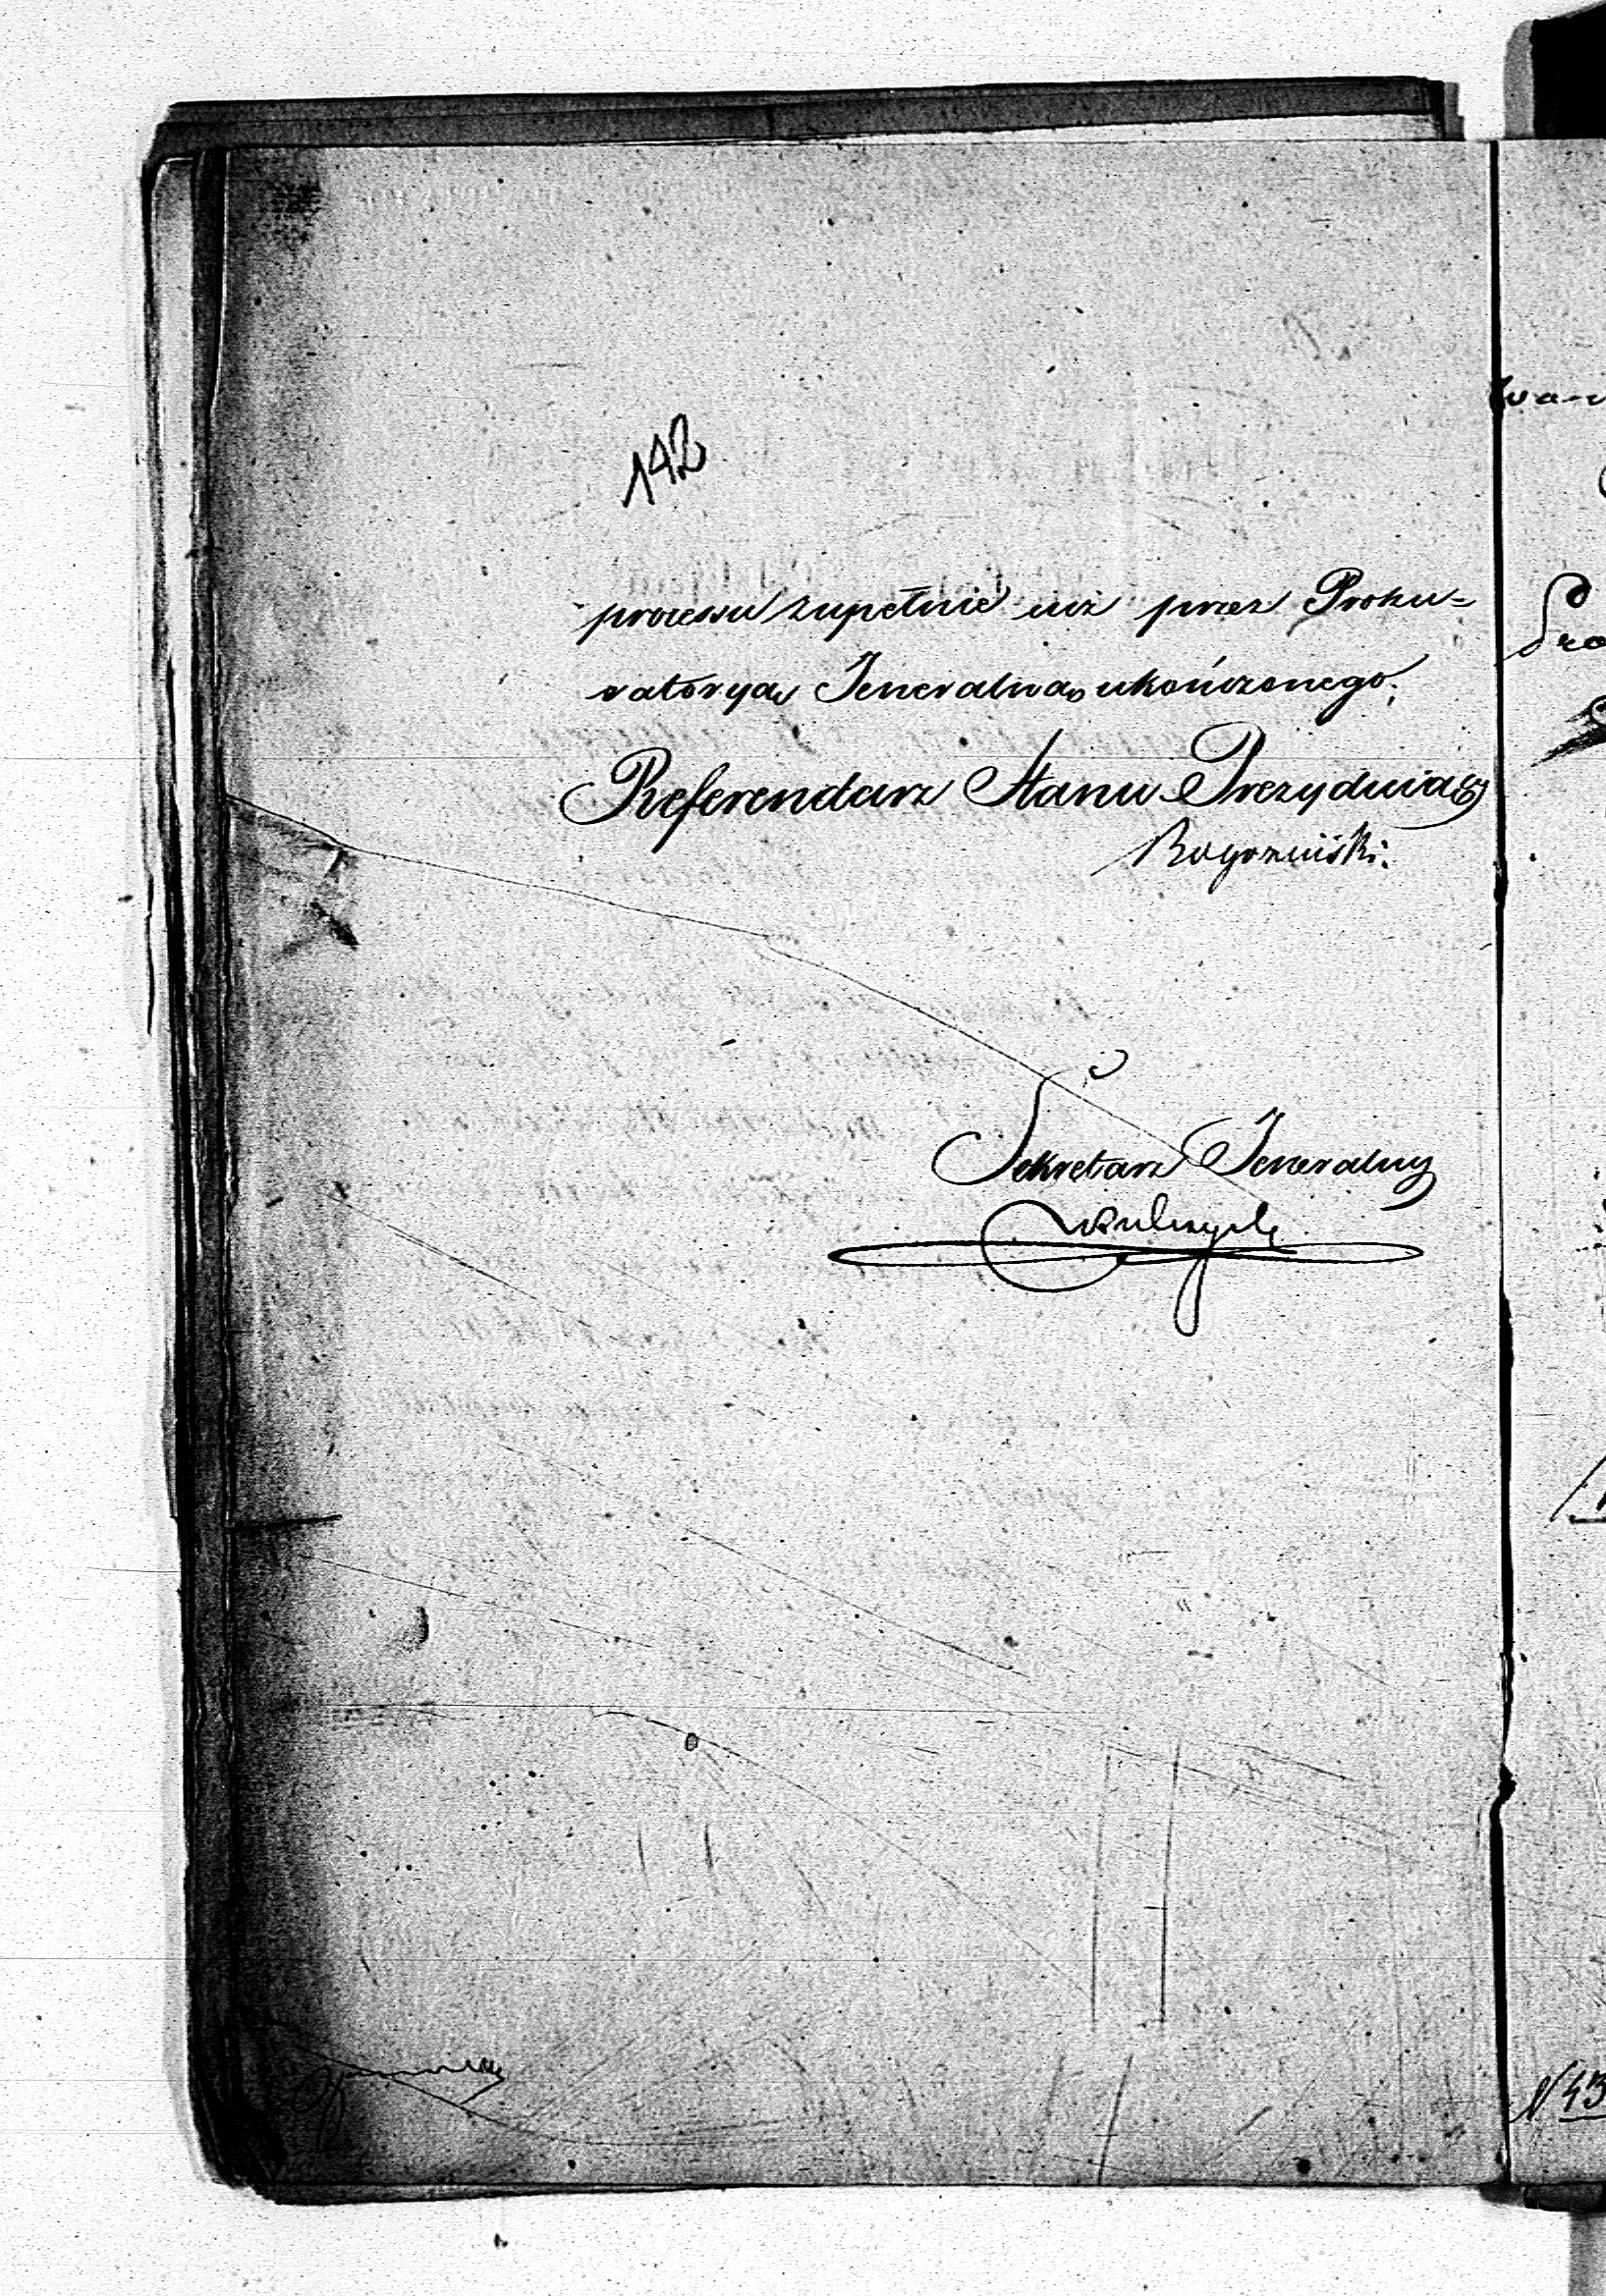 142
processu zupełnie iuż przez Proku=
ratoryą Jeneralną ukończonego.
Referendarz Stanu Prezyduiący
Sekretarz Jeneralny
N 43